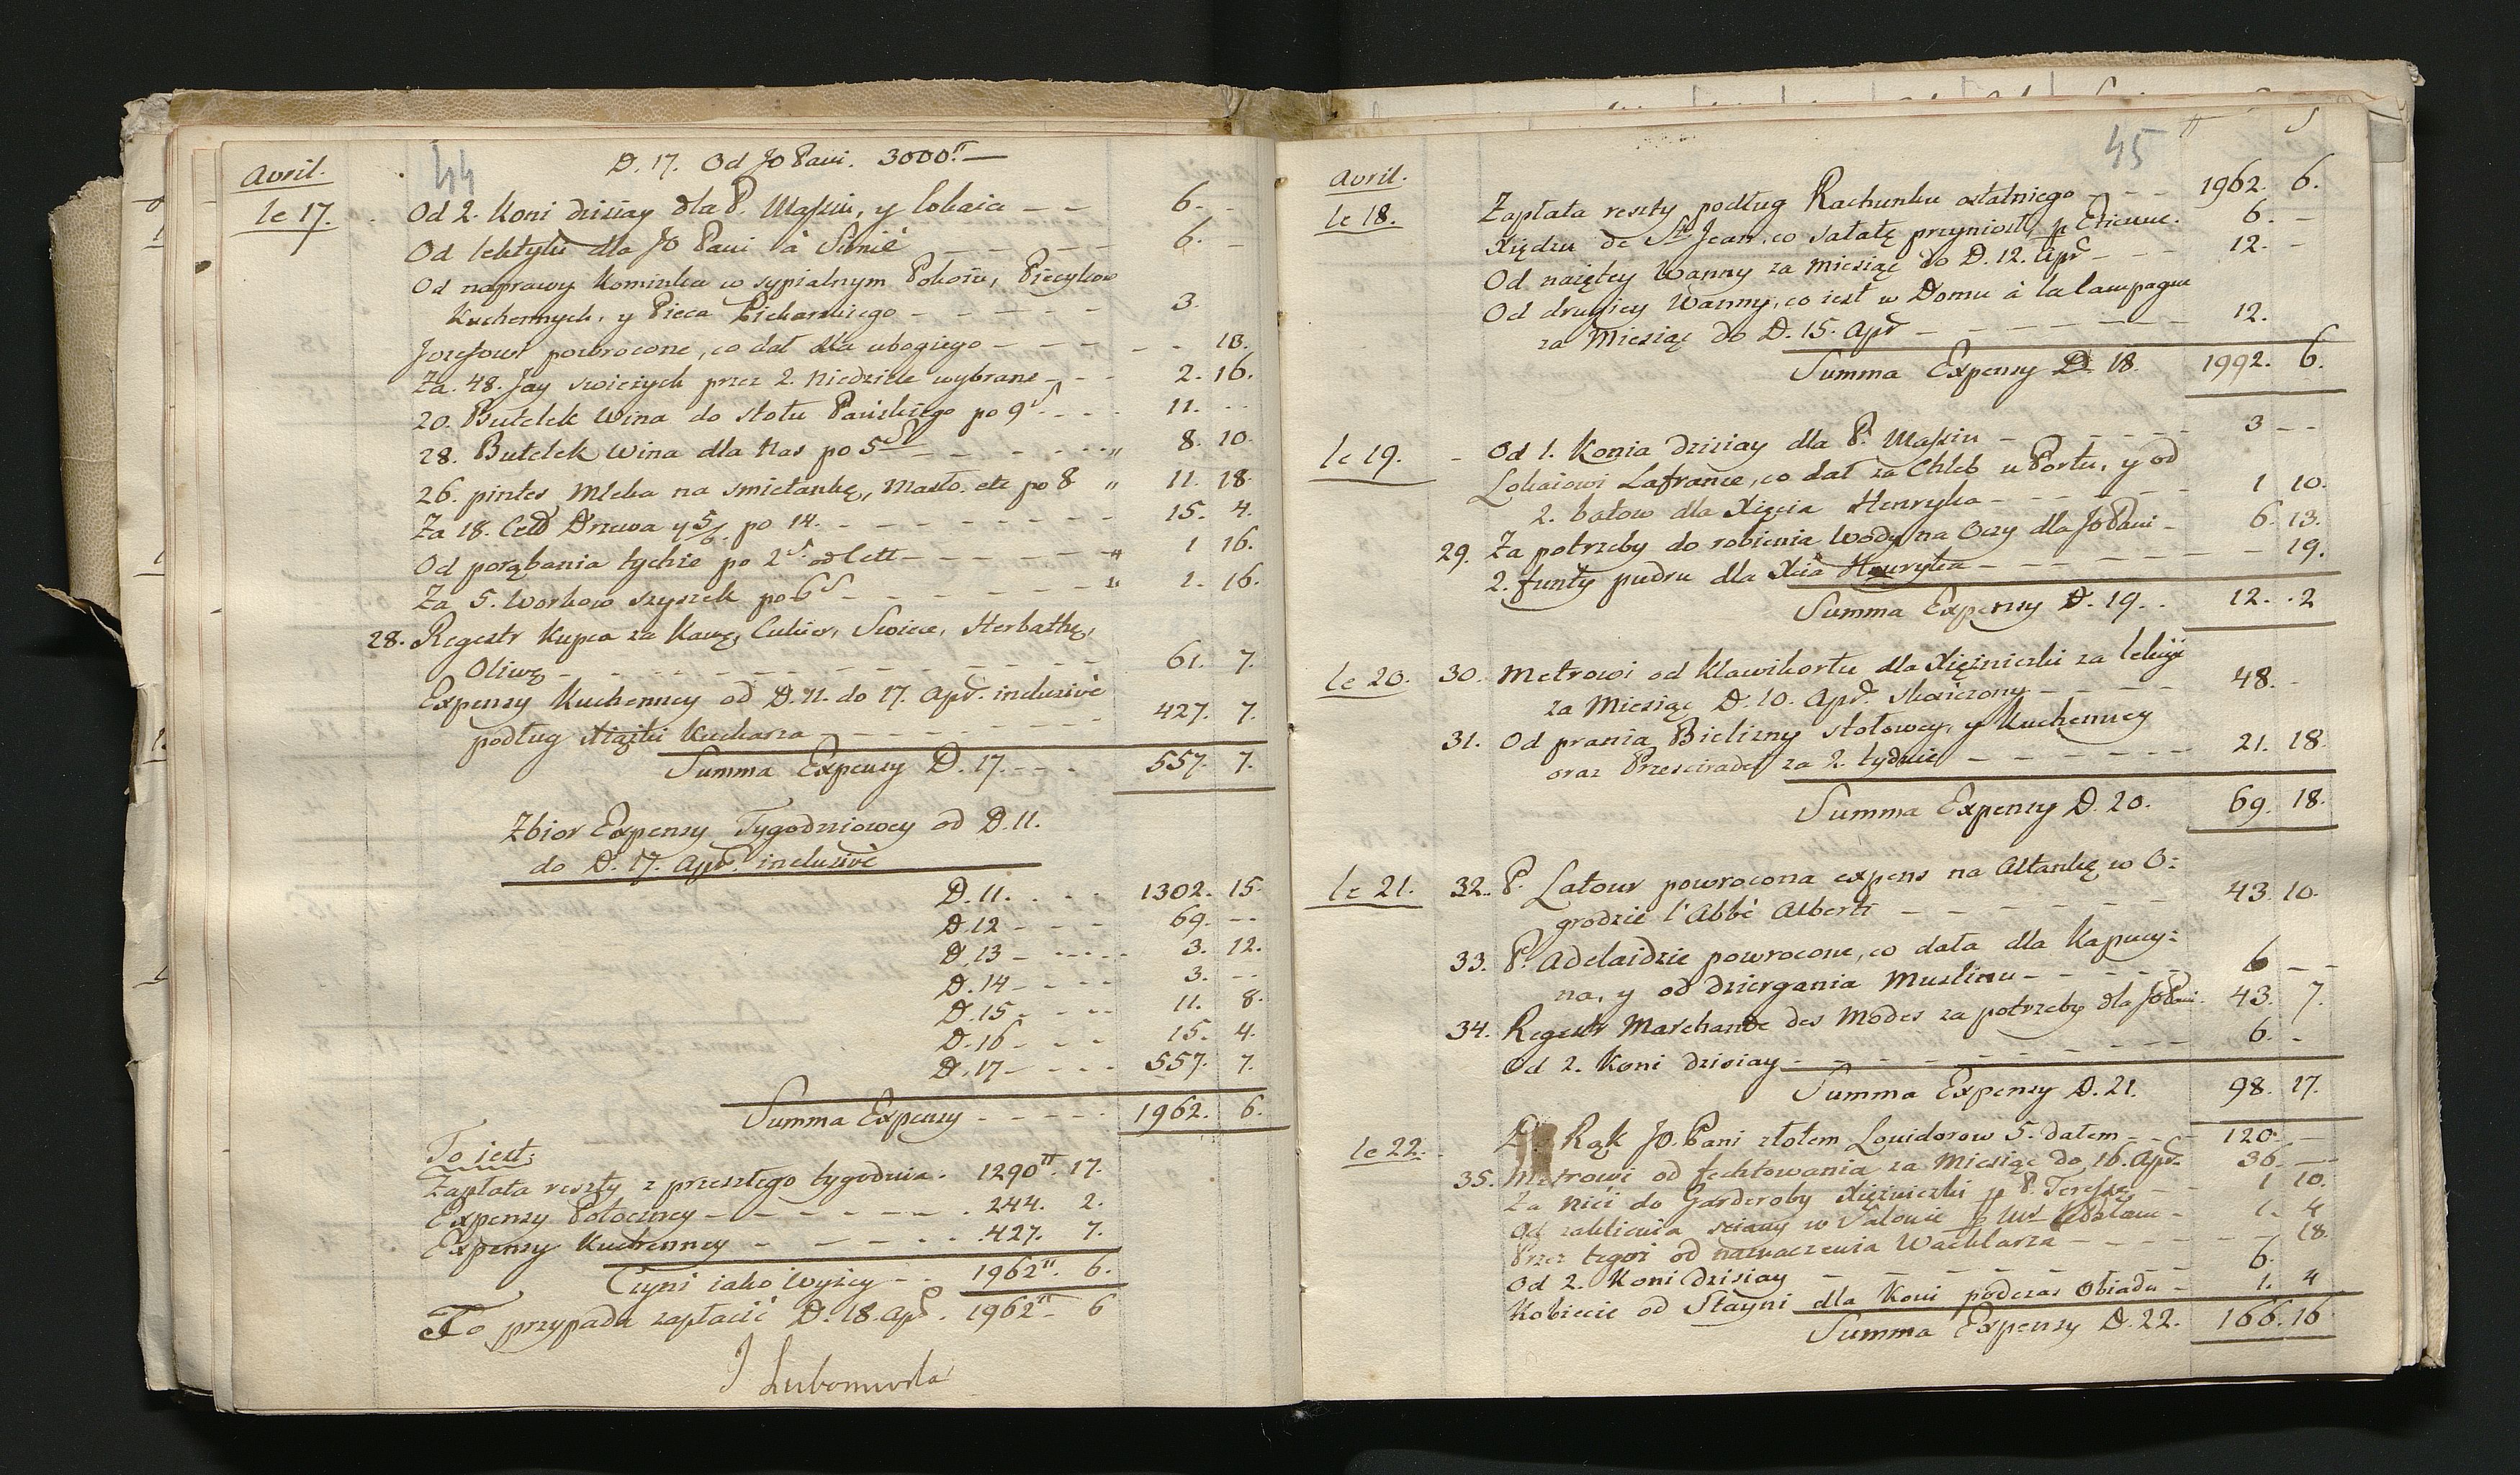 44
D. 17. Od JO Pani. 3000.tt —
Avril.
le 17. Od 2. Koni dzisiay dla P. Massiu, y lokaia — — 6. -
Od lektyki dla JO Pani à Sunié — — — 6. —
Od naprawy kominka w sypialnym Pokoiu, Piecykow
Kuchennych, y Pieca Piekarskiego — — — — — 3.
Jozefowi powrocone, co dał dla ubogiego — — — — — 18.
Za. 48. Jay swieżych przez 2. niedziele wybrane — — 2. 16.
20. Butelek Wina do stołu Pańskiego po 9 s. — — — 11. - -
28. Butelek Wina dla nas po 5 s — — — — — " 8. 10.
26. pintes Mleka na smietankę, masło. etc po 8 " 11. 18.
Za 18. Cett Drzewa y 5/6. po 14. — — — — — — 15. 4.
Od porąbania tychże po 2 s. od Cett — — — — — " 1 16.
Za 5. Workow szyszek po 6 s — — — — — " 1. 16.
28. Regestr kupca za kawę, Cukier, Swiece, Herbatkę,
Oliwę — — — — — — — — 61. 7.
Expensy Kuchenney od D. 11. do 17. Apr. inclusivè
podług Xiążki Kucharza — — — — — 427. 7.
Summa Expensy D. 17. — — . 557. 7.
Zbior Expensy Tygodniowey od D. 11.
do D. 17. Apr. inclusivè
D. 11. . . . 1302. 15.
D. 12 — — — 69. --
D. 13 — — — 3. 12.
D. 14 — — — 3. --
D. 15 — — — 11. 8.
D. 16 — — — 15. 4.
D. 17 — — — 557. 7.
Summa Expensy — — — — 1962. 6.
To iest:
Zapłata reszty z przeszłego tygodnia. 1290 tt. 17.
Expensy Potoczney — — — — — — . 244. 2.
Expensy Kuchenney — — — — . . 427. 7.
Czyni iako Wyżey — . 1962 tt. 6.
To przypada zapłacić D. 18. Apr. 1962 tt — 6
J Lubomirska
45
tt s
Avril.
le 18. Zapłata reszty podług Rachunku ostatniego — — — 1962. 6.
Xiędzu de St Jean, co sałatę przyniosł, p Etienne. 6. —
Od naiętey Wanny za miesiąc do D. 12. Apr — — — 12. -
Od drugiey Wanny, co iest w Domu à la Campagne
za Miesiąc do D. 15. Apr — — — — — — 12.
Summa Expensy D. 18. 1992. 6.
le 19. - Od 1. Konia dzisiay dla P. Massiu — — — — — 3 - -
Lokaiowi Lafrance, co dał za Chleb u Portu, y od
2. bałow dla Xięcia Henryka — — — — 1 10.
29. Za potrzeby do robienia Wody na Oczy dla JO Pani — 6. 13.
2. funty pudru dla Xcia Henryka — — — — — — 19.
Summa Expensy D. 19. . 12. . 2
le 20. 30. Metrowi od Klawikortu dla Xiężniczki za lekcÿe
za Miesiąc D. 10. Apr. skończony — — — — 48. -
31. Od prania Bielizny stołowey, y Kuchenney
oraz Przescirادeł za 2. tydnie — — — — — 21. 18.
Summa Expensy D. 20. 69. 18.
le 21. 32. P. Latour powrocona expens na Altankę w O:
grodzie l'Abbé Alberti — — — — — — 43. 10.
33. P. Adelaidzie powrocone, co dała dla Kapucy:
na, y od dziergania Muslinu — — — — — 6 — —
34. Regestr Marchande des Modes za potrzeby dla JO Pani. 43. 7.
Od 2. Koni dzisiay — — — — — — — — 6. -
Summa Expensy D. 21. 98. 17.
le 22. - Rąk JO. Pani złotem Louidorow 5. dałem — — 120. —
35. Metrowi od fechtowania za Miesiąc do 16. Apr. 36. —
Za nici do Garderoby Xiężniczki p P. Teresse — — 1 10.
Od zaklienia sciany w Salonie p — 1. 4
Przez tegoż od naznaczenia Wachlarza — — — — — 18.
Od 2. Koni dzisiay — — — — — — — 6.
Kobiecie od Stayni dla Koni podczas Obiadu — 1. 4
Summa Expensy D. 22. 166. 16